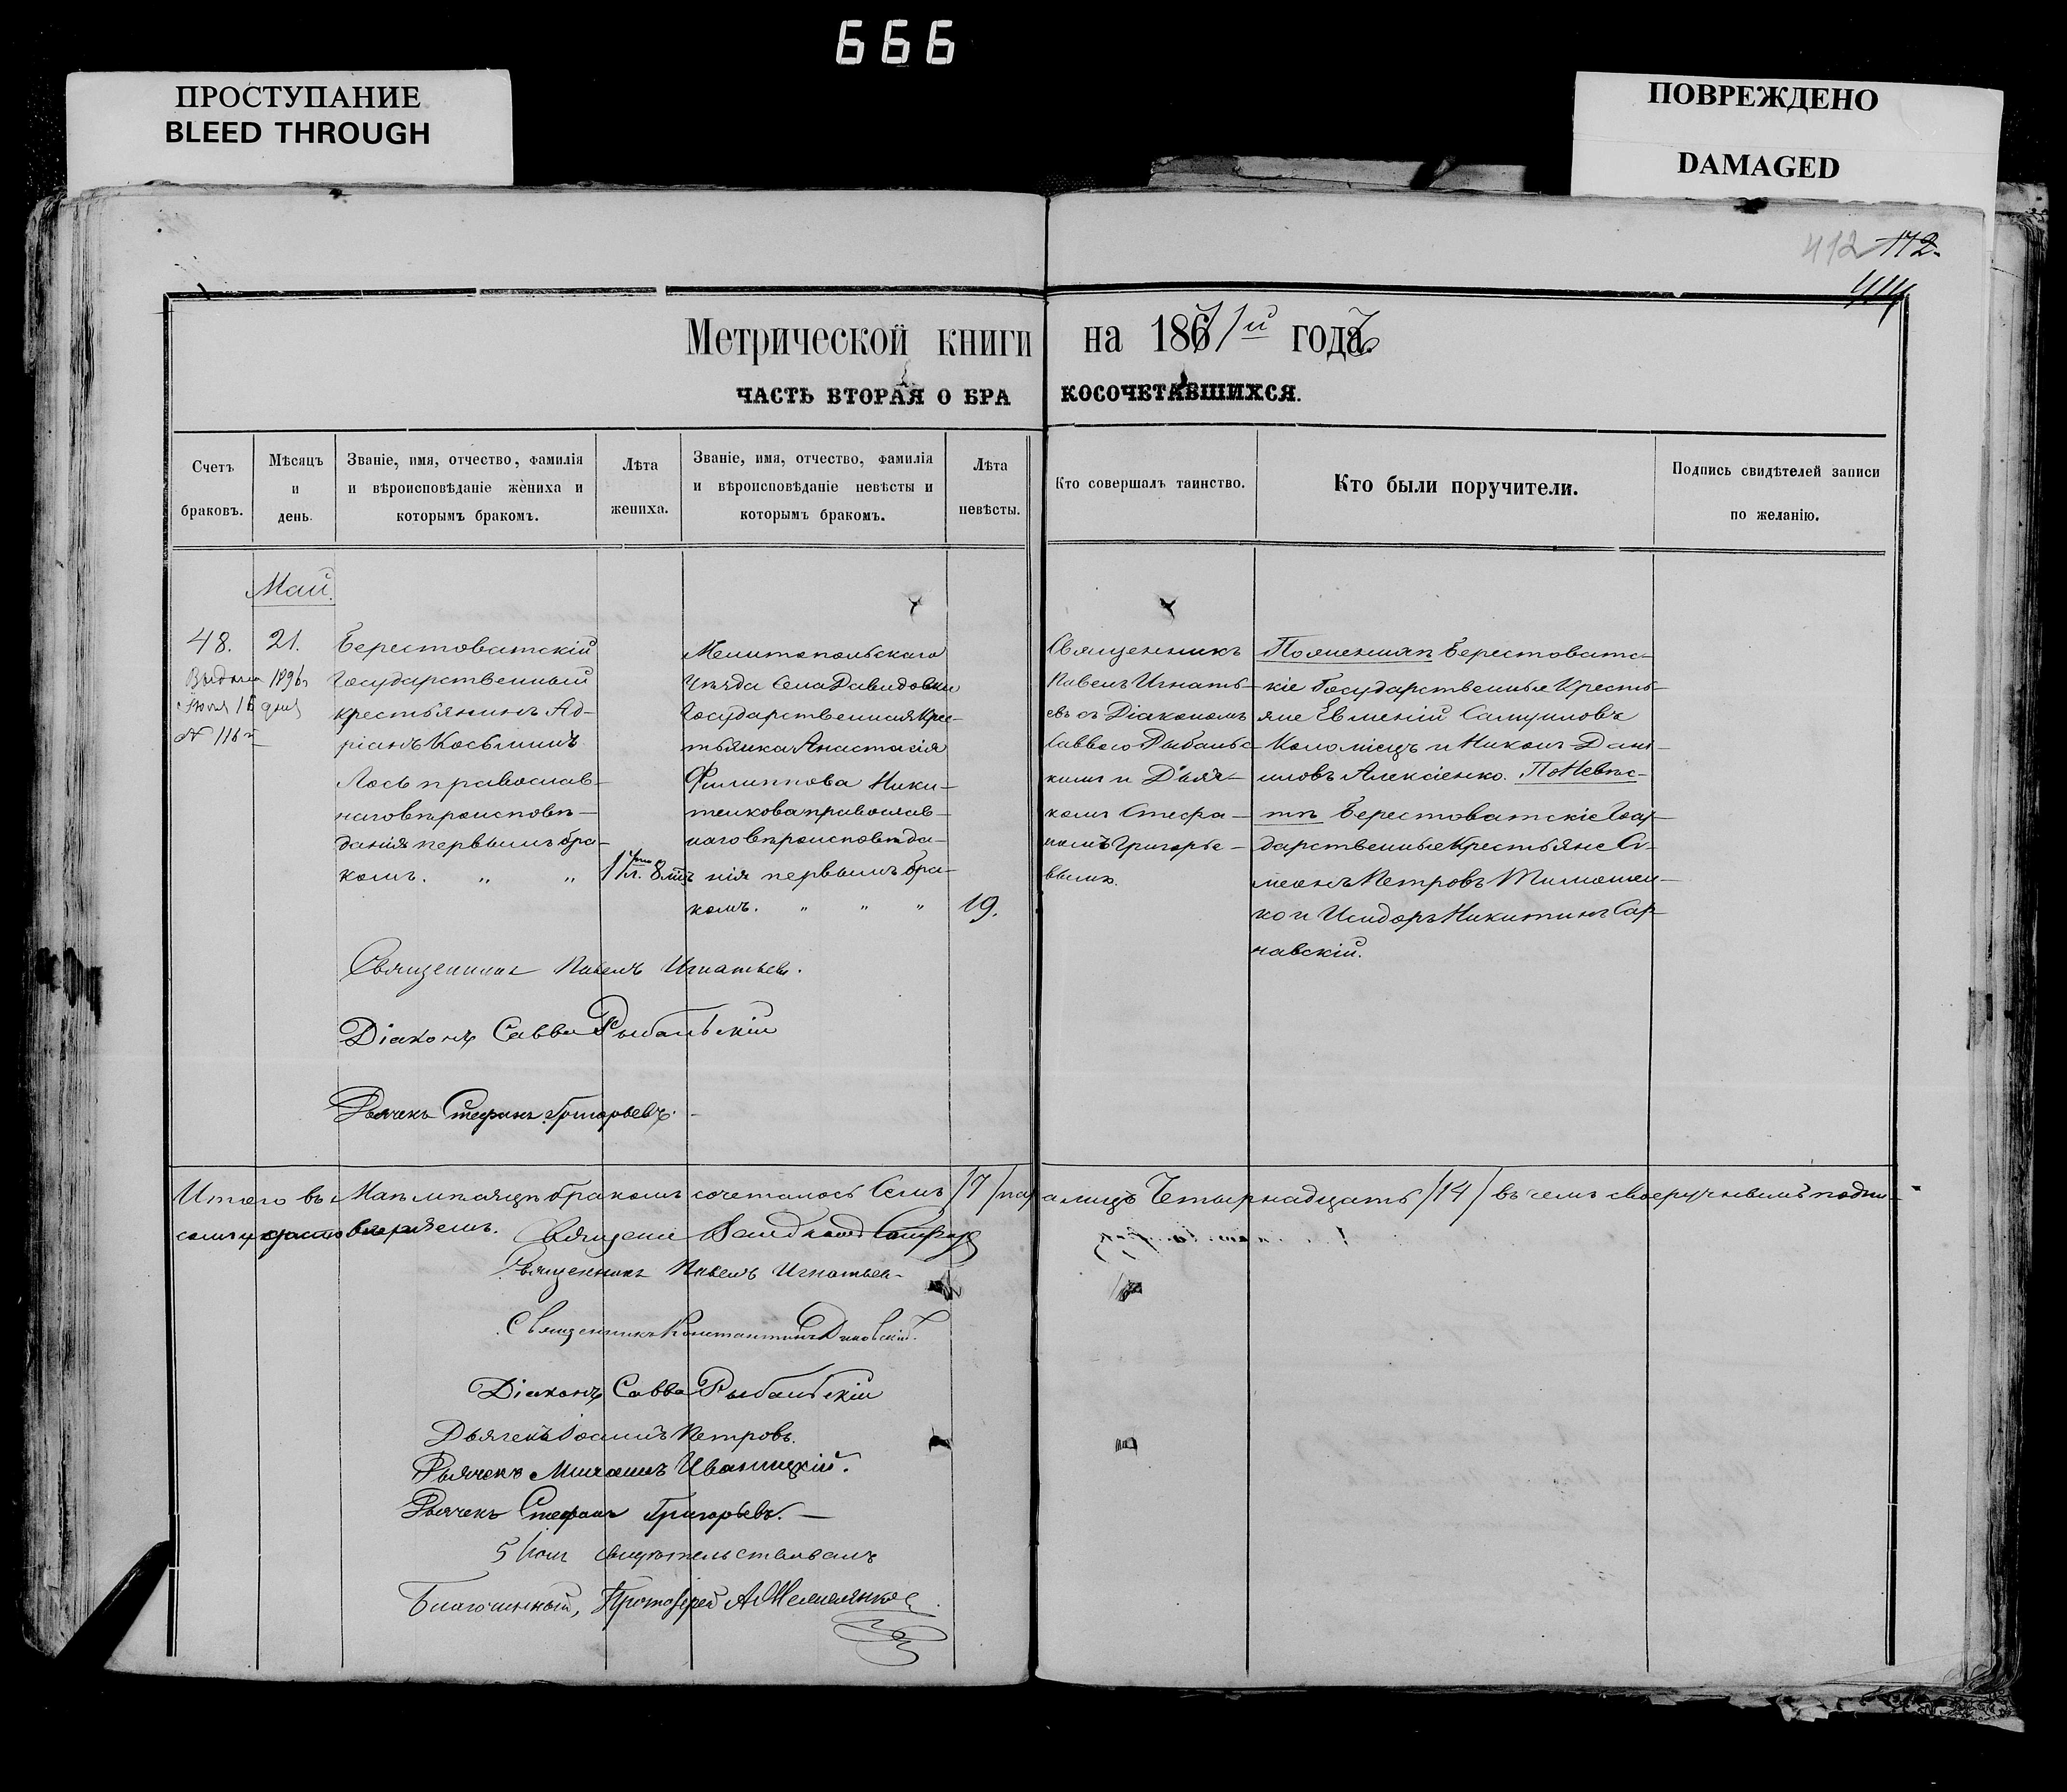 666
ПРОСТУПАНИЕ
BLEED THROUGH
ПОВРЕЖДЕНО
DAMAGED
412 172.
Метрической книги на 1871й годъ
ЧАСТЬ ВТОРАЯ О БРАКОСОЧЕТАВШИХСЯ.
Счетъ браковъ.
Мѣсяцъ и день.
Званіе, имя, отчество, фамилія и вѣроисповѣданіе жениха и которымъ бракомъ.
Лѣта жениха.
Званіе, имя, отчество, фамилія и вѣроисповѣданіе невѣсты и которымъ бракомъ.
Лѣта невѣсты.
Кто совершалъ таинство.
Кто были поручители.
Подпись свидѣтелей записи по желанію.
Май.
48. 21.
1896
16 дня
№ 116
Берестоватскій
Государственный
крестьянинъ Ад-
ріанъ Косьминъ
Лось православ-
наго вѣроисповѣ-
данія первымъ бра-
комъ. „ „
Мелитопольскаго
Уѣзда Села Давидовки
Государственная Крес-
тьянка Анастасія
Филиппова Ники-
тенкова православ-
наго вѣроисповѣда-
нія первымъ бра-
комъ. „ „ „
19.
Священникъ
Павелъ Игнать-
евъ съ Діакономъ
Саввою Рыбальс-
кимъ и Дьяч-
комъ Стефа-
номъ Григорье-
вымъ.
По женихѣ Берестоватс-
кіе Государственные Кресть-
яне Евменій Самуиловъ
Коломіецъ и Никонъ Дані-
иловъ Алексіенко. По Невѣс-
тѣ Берестоватскіе Госу-
дарственные Крестьяне Си-
меонъ Петровъ Тимошен-
ко и Исидоръ Никитинъ Сар-
навскій.
Священникъ Павелъ Игнатьевъ.
Діаконъ Савва Рыбальскій
Дьячекъ Стефанъ Григорьевъ.
Итого въ Маѣ мѣсяцѣ бракомъ сочеталось Семь /7/ паръ а лицъ Четырнадцать /14/ въ чемъ своеручнымъ подпи-
сомъ удостовѣряемъ. Священн
Священникъ Павелъ Игнатьевъ
Священникъ Константинъ
Діаконъ Савва Рыбальскій
Дьячекъ Іоаннъ Петровъ.
Дьячекъ Михаилъ Иваницкій.
Дьячекъ Стефанъ Григорьевъ.
свидѣтельствовалъ
Благочинный, Протоіерей